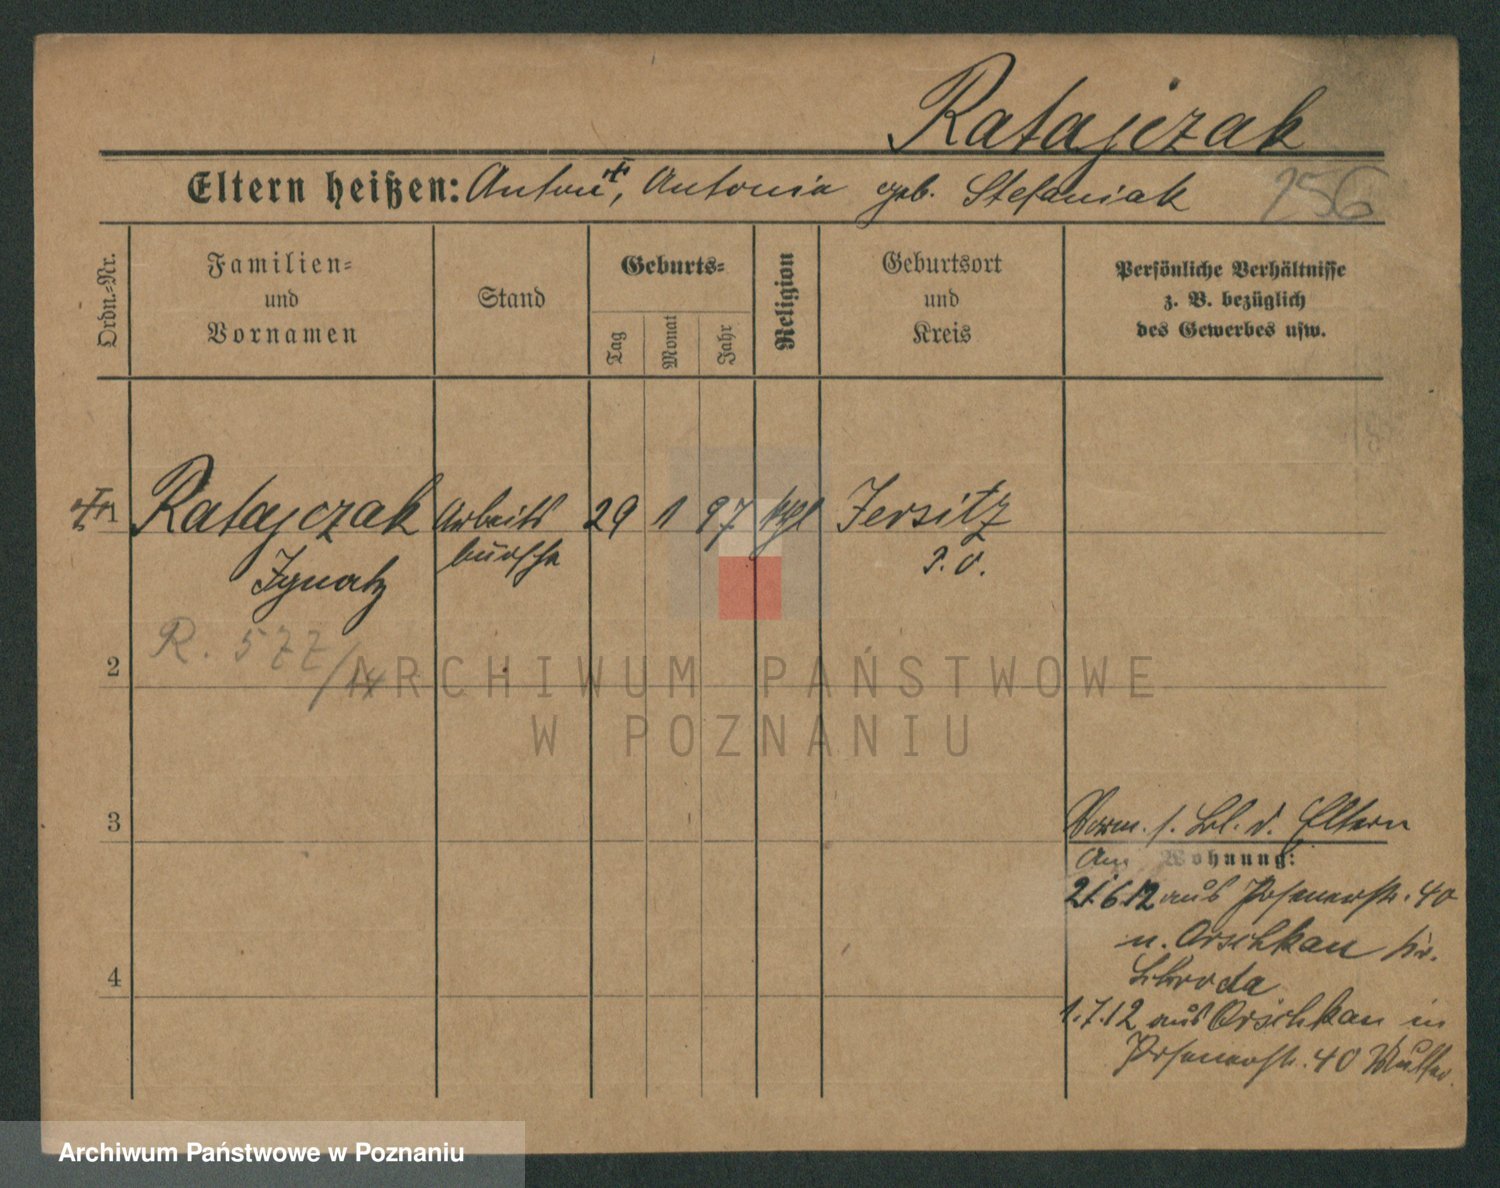 Ratajczak
Eltern heißen: Anton, Antonia geb. Stefaniak 256
Ordn.-Nr.
Familien-
und
Vornamen
Stand
Geburts-
Tag
Monat
Jahr
Religion
Geburtsort
und
Kreis
Persönliche Verhältnisse
z. B. bezüglich
des Gewerbes usw.
1 Ratajczak Arbeits 29 1 97 kgl Jersitz
Ignatz bursche P. O.
R. 577/14
2
3
4
Vorm. s. Bl. d. Eltern
Am Wohnung:
21.6.12 aus Posenerstr. 40
n. Orschkau Kr.
Schroda
1.7.12 aus Orschkau in
Posenerstr. 40 Mutter.
ARCHIWUM PAŃSTWOWE
W POZNANIU
Archiwum Państwowe w Poznaniu